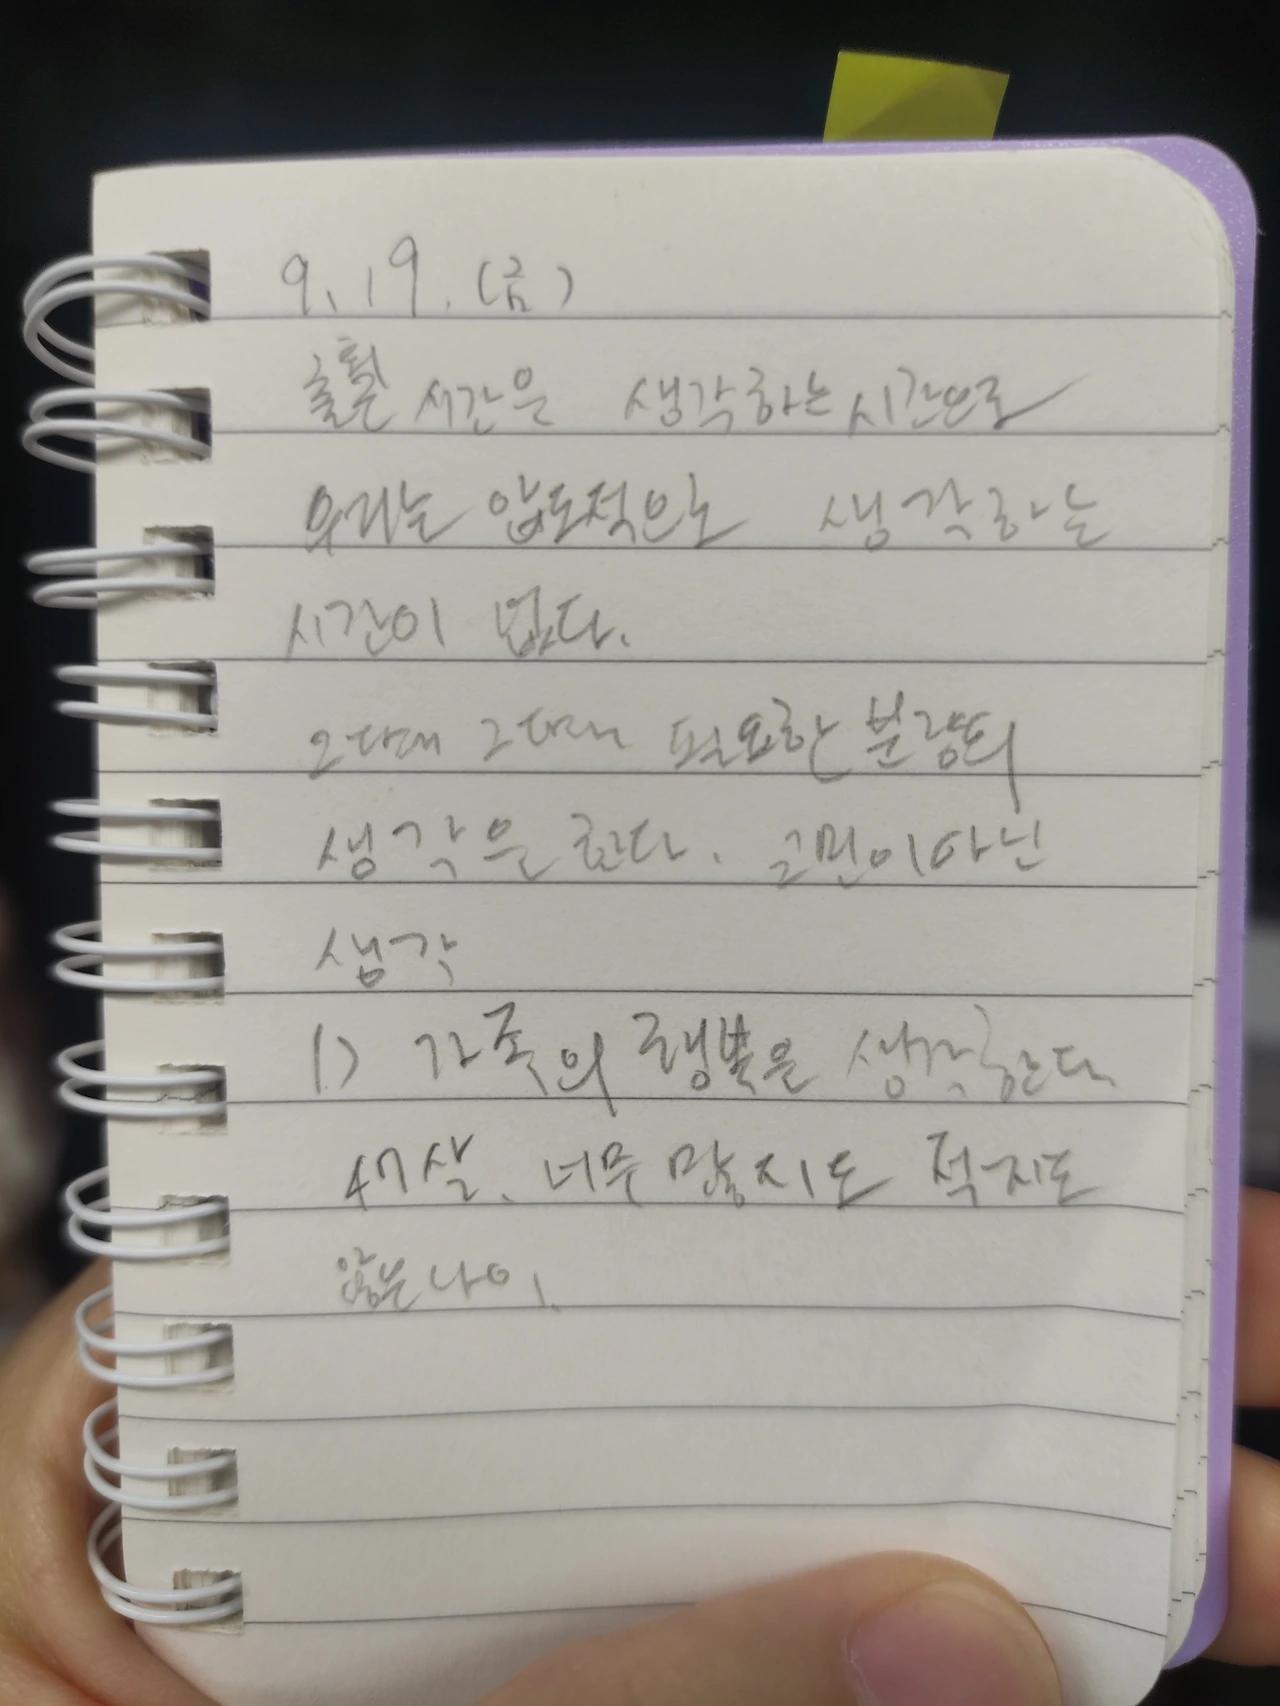 9. 19. (금)
출퇴근 시간은 생각하는 시간으로
우리는 압도적으로 생각하는
시간이 없다.
그때그때 필요한 분량의
생각을 한다. 고민이 아닌
생각
1) 가족의 행복을 생각한다
47살. 너무 많지도 적지도
않은 나이.